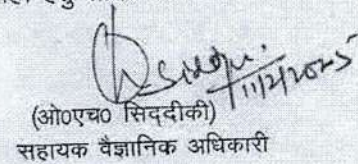 11/2/2025
(ओ०एच० सिद्दीकी)
सहायक वैज्ञानिक अधिकारी